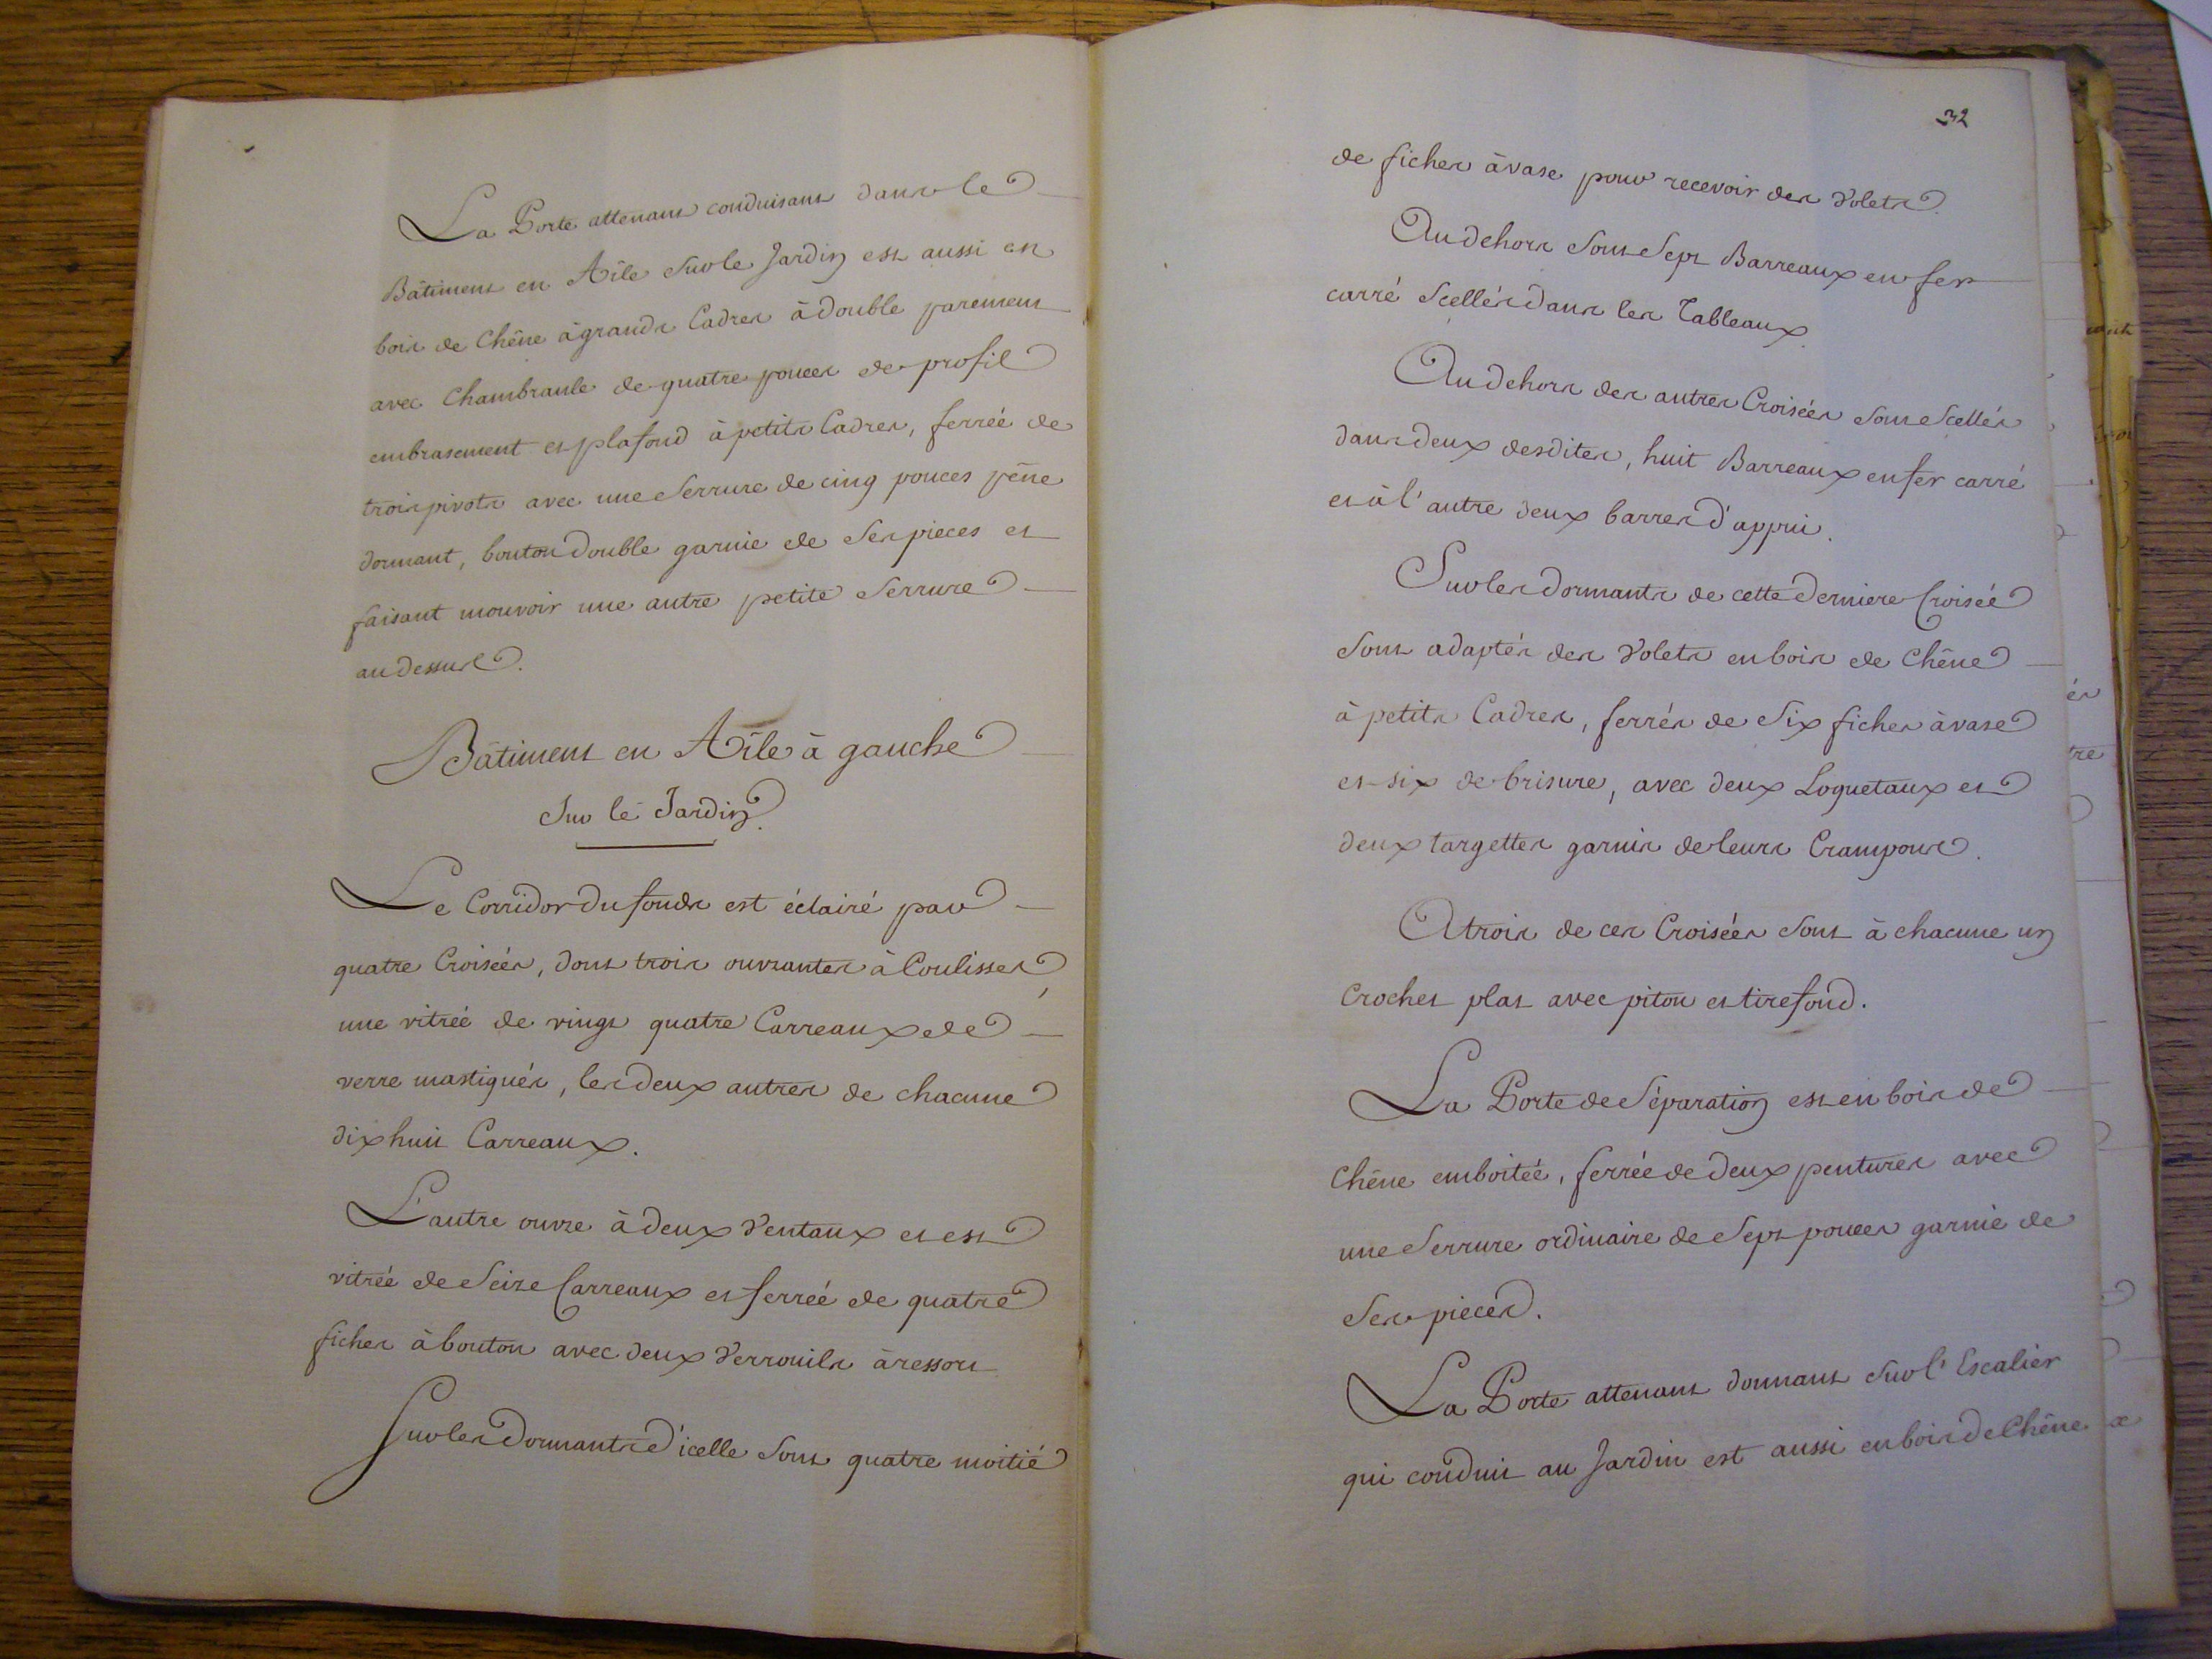 La Porte attenant conduisant dans le
Bâtiment en Aîle sur le Jardin est aussi en
bois de Chêne à grands Cadres à double parement
avec Chambranle de quatre pouces de profil
embrasement et plafond à petits Cadres, ferrée de
trois pivots avec une Serrure de cinq pouces pêne
dormant, bouton double garnie de Ses pieces et
faisant mouvoir une autre petite Serrure
au dessus.
Bâtiment en Aîle à gauche
Sur le Jardin.
Le Corridor du fonds est éclairé par
quatre Croisées, dont trois ouvrantes à Coulisses,
une vitrée de vingt quatre Carreaux de
verre mastiqués, les deux autres de chacune
dix huit Carreaux.
L'autre ouvre à deux Ventaux et est
vitrée de Seize Carreaux et ferrée de quatre
fiches à bouton avec deux Verrouils à ressort
Sur les Dormants d'icelle Sont quatre moitié
32
de fiches à vase pour recevoir des Volets.
Au dehors Sont Sept Barreaux en fer
carré Scellés dans les Tableaux.
Au dehors des autres Croisées Sont Scellés
dans deux desdites, huit Barreaux en fer carré
et à l'autre deux barres d'appui.
Sur les Dormants de cette Derniere Croisée
Sont adaptés des Volets en bois de Chêne
à petits Cadres, ferrés de Six fiches à vase
et six de brisure, avec deux Loquetaux et
deux targettes garnis de leurs Crampons.
A trois de ces Croisées Sont à chacune un
Crochet plat avec piton et tirefond.
La Porte de Séparation est en bois de
Chêne emboitée, ferrée de Deux pentures avec
une Serrure ordinaire de Sept pouces garnie de
Ses pieces.
La Porte attenant donnant Sur l'Escalier
qui conduit au Jardin est aussi en bois de Chêne